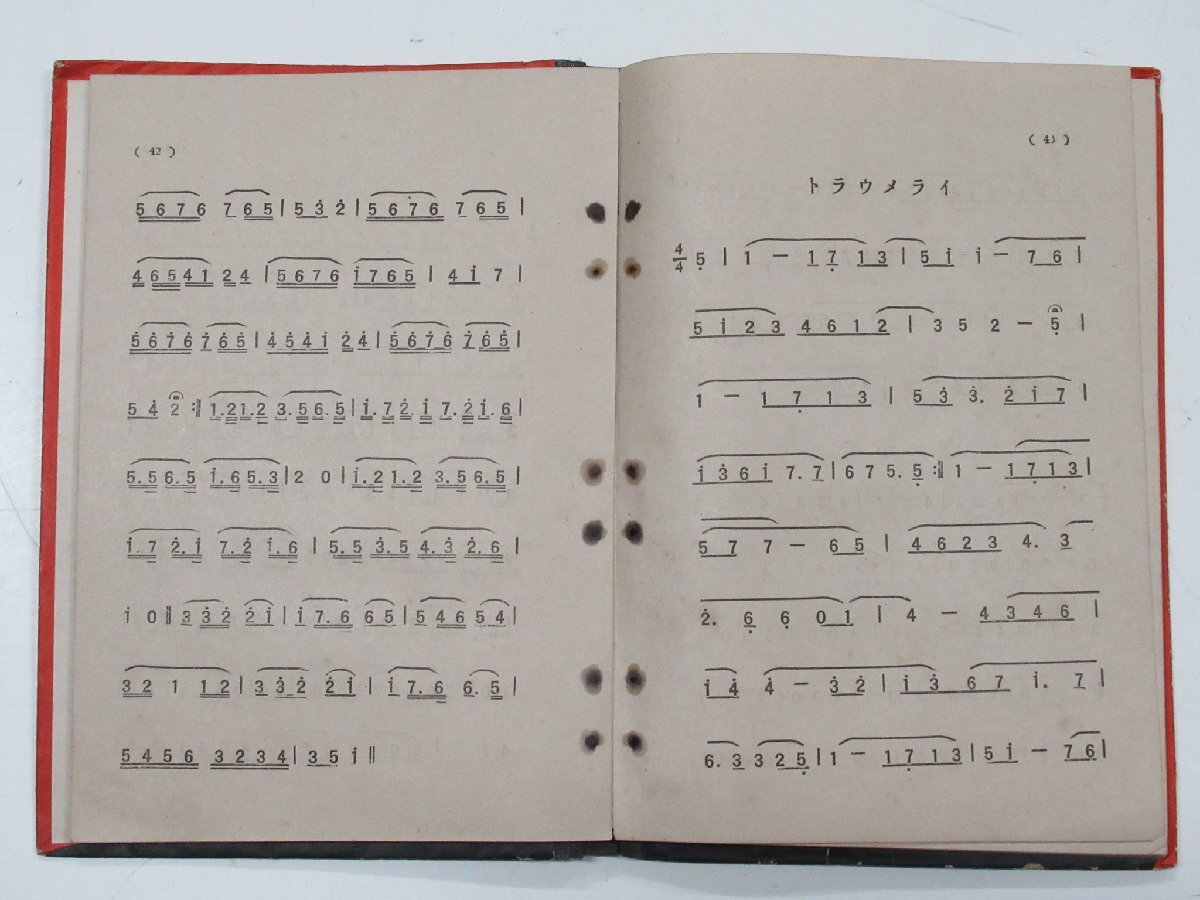 ( 42 )
5 6 7 6 7 6 5 | 5 3̇ 2̇ | 5 6 7 6 7 6 5 |
4 6 5 4 1 2 4 | 5 6 7 6 i̇ 7 6 5 | 4 i̇ 7 |
5̇ 6̇ 7̇ 6̇ 7̇ 6̇ 5̇ | 4̇ 5̇ 4̇ i̇ 2̇ 4̇ | 5̇ 6̇ 7̇ 6̇ 7̇ 6̇ 5̇ |
5 4̇ 2̇ :‖ 1. 2 1. 2 3. 5 6. 5 | i̇. 7 2̇. i̇ 7. 2̇ i̇. 6 |
5. 5 6. 5 i̇. 6 5. 3 | 2 0 | i̇. 2 1. 2 3. 5 6. 5 |
i̇. 7 2̇. i̇ 7. 2̇ i̇. 6 | 5. 5 3̇. 5 4̇. 3̇ 2̇. 6 |
i̇ 0 ‖ 3̇ 3̇ 2̇ 2̇ i̇ | i̇ 7. 6 6 5 | 5 4 6 5 4 |
3 2 1 1 2 | 3̇ 3̇ 2̇ 2̇ i̇ | i̇ 7. 6 6. 5 |
5 4 5 6 3 2 3 4 | 3 5 i̇ ‖
( 43 )
トラウメライ
4/4 5̣ | 1 — 1 7̣ 1 3 | 5 i̇ i̇ — 7 6 |
5 i̇ 2 3 4 6 1 2 | 3 5 2 — 5̣ |
1 — 1 7̣ 1 3 | 5 3̇ 3̇. 2̇ i̇ 7 |
i̇ 3̇ 6 i̇ 7. 7̣ | 6 7 5. 5̣ :‖ 1 — 1 7̣ 1 3 |
5 7 7 — 6 5 | 4 6 2 3 4. 3 |
2̇. 6̣ 6̣ 0 1 | 4 — 4 3 4 6 |
i̇ 4̇ 4̇ — 3̇ 2̇ | i̇ 3̇ 6 7 i̇. 7 |
6. 3 3 2 5̣ | 1 — 1 7̣ 1 3 | 5 i̇ — 7 6 |